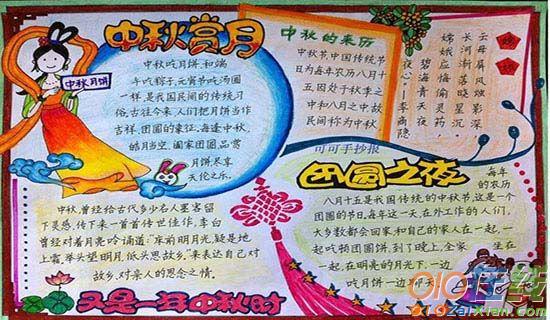 中秋赏月
中秋月饼
中秋吃月饼,和端
午吃粽子,元宵节吃汤圆
一样,是我国民间的传统习
俗.古往今来,人们把月饼当作
吉祥、团圆的象征,每逢中秋,
皓月当空,阖家团圆,品赏
月饼,尽享
天伦之乐。
中秋的来历
中秋节,中国传统节
日为每年农历八月十
五,因处于秋季之
中和八月之中,故
民间称为中秋
嫦娥
云母屏风烛影深
长河渐落晓星沉
嫦娥应悔偷灵药
碧海青天夜
夜心——李商隐
可可手抄报
团圆之夜
每年
的农历
八月十五是我国传统的中秋节,这是一个
团圆的节日,每年这一天,在外工作的人们,
大多数都会回家和自己的家人在一起,一
起吃顿团圆饼,到了晚上,全家
坐在一
起,在明亮的月光下,一边
吃月饼一边聊天
中秋,曾经给古代多少名人墨客留
下灵感,传下来一首首传世佳作,李白
曾经对着月亮吟诵道:"床前明月光,疑是地
上霜,举头望明月,低头思故乡。"来表达自己对
故乡、对亲人的思念之情。
又是一年中秋时
910在线
x1.910zaixian.com